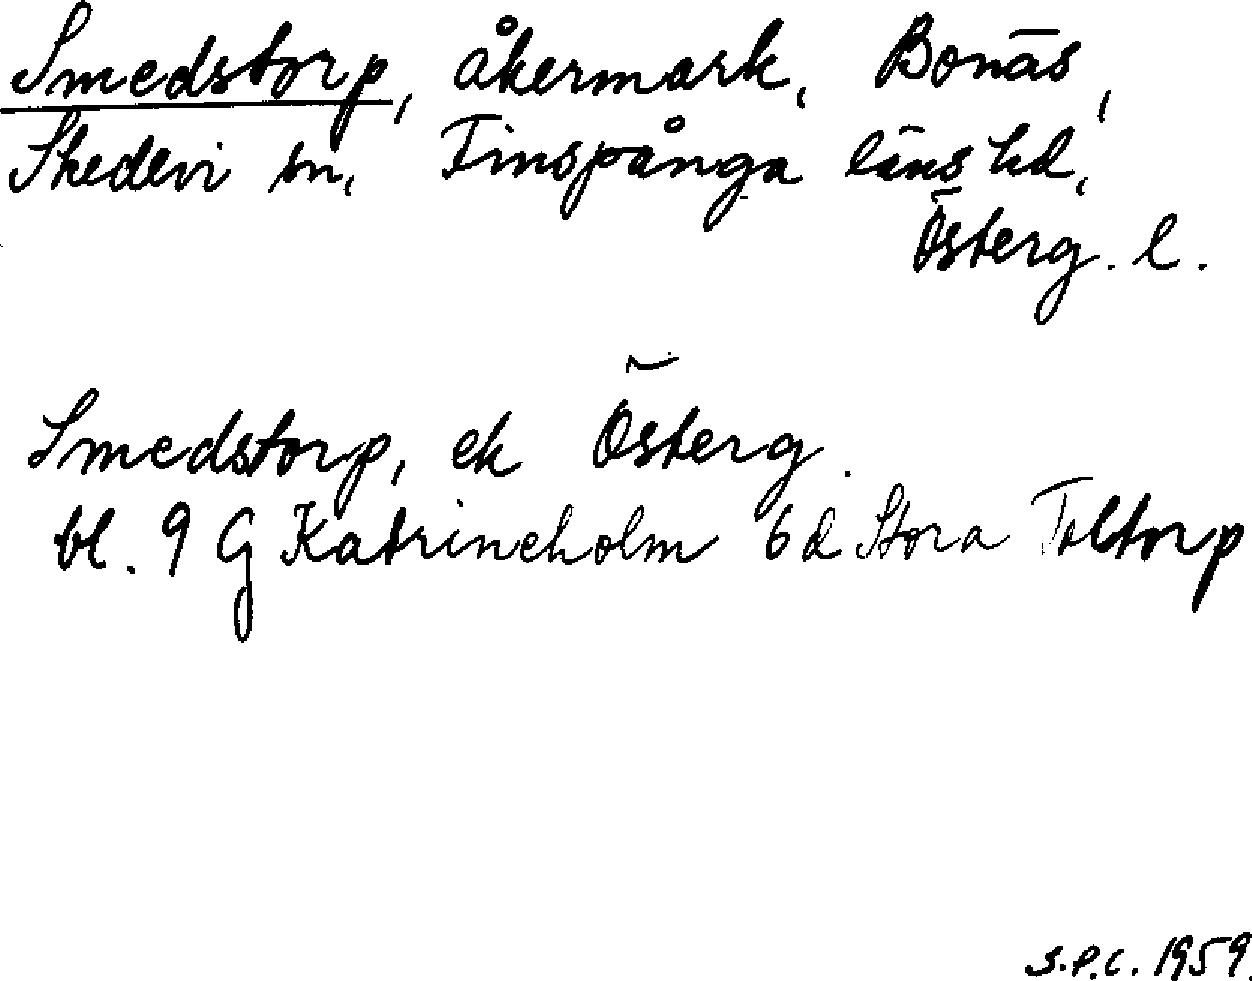 Smedstorp, åkermark, Bonäs,
Skedevi sn, Finspånga läns hd,
Österg. l.
Smedstorp, ek Österg.
bl. 9 G Katrineholm 6d Stora Toltorp
S.P.C. 1959.